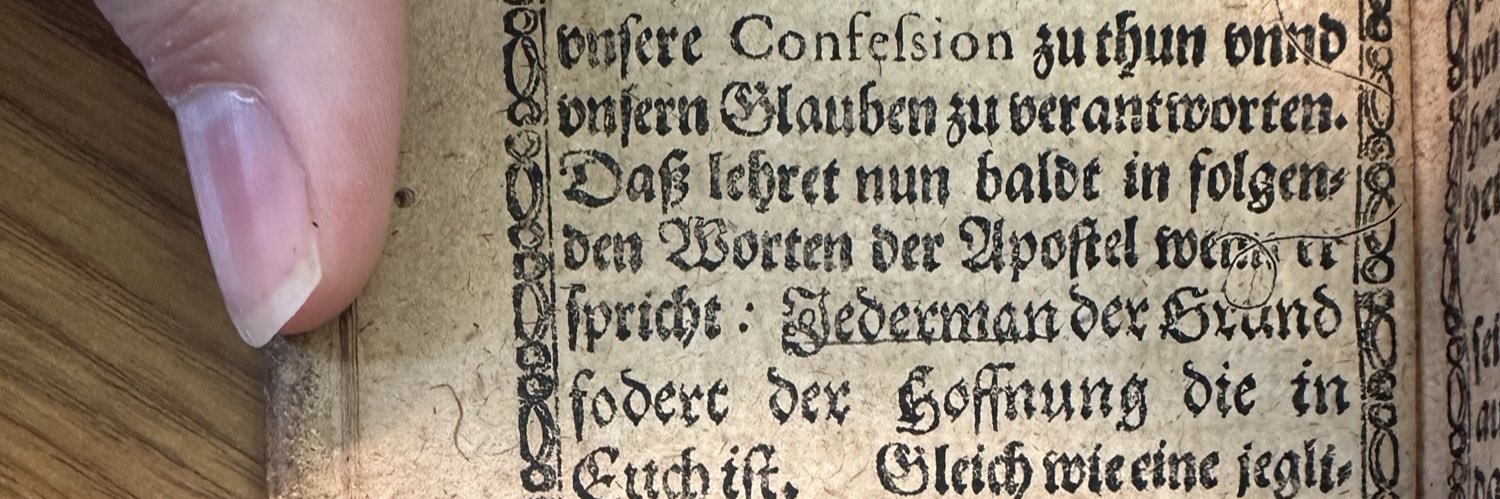 vnſere Confeſsion zu thun vnnd
vnſern Glauben zu verantworten.
Daß lehret nun baldt in folgen⸗
den Worten der Apoſtel wenn er
ſpricht : Jederman der Grund
fodert der Hoffnung die in
Euch iſt. Gleich wie eine jegli⸗